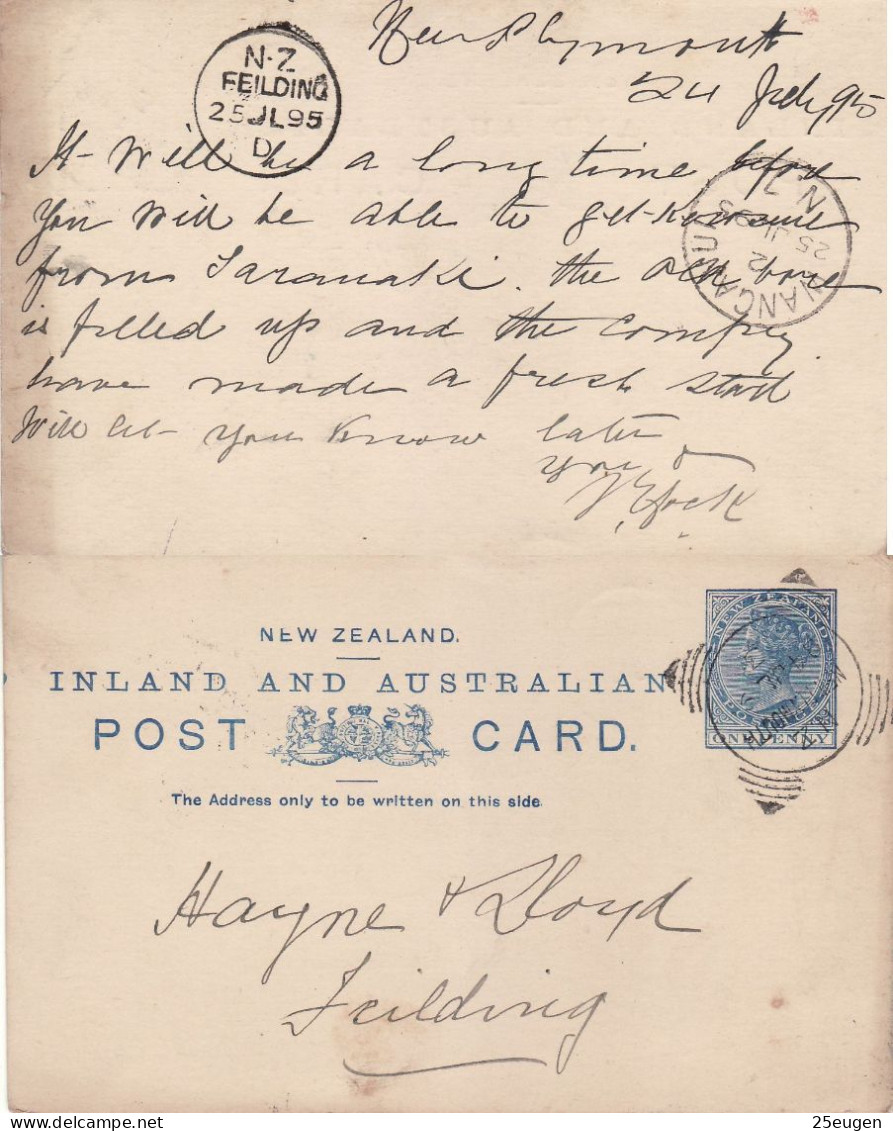 New Plymouth
24 July 95
N-Z
FEILDING
25 JL 95
D
It will be a long time before
you will be able to get Kerosene
from Taranaki. the old bore
is filled up and the Compy
have made a fresh start
Will let you know later
N.Z
WANGANUI
25 JL 95
2
NEW ZEALAND.
INLAND AND AUSTRALIAN
POST CARD.
The Address only to be written on this side.
NEW ZEALAND
ONE PENNY
N.Z
Hayne & Lloyd
Feilding
25eugen